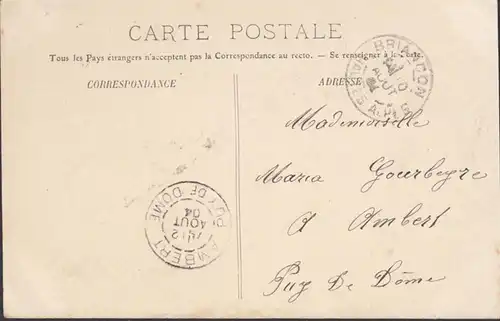 CARTE POSTALE
Tous les Pays étrangers n'acceptent pas la Correspondance au recto. — Se renseigner à la Poste.
CORRESPONDANCE
ADRESSE
BRIANÇON
AOUT
Mademoiselle
Maria Gourbeyre
A Ambert
Puy De Dôme
AMBERT
PUY DE DOME
12
AOUT
04